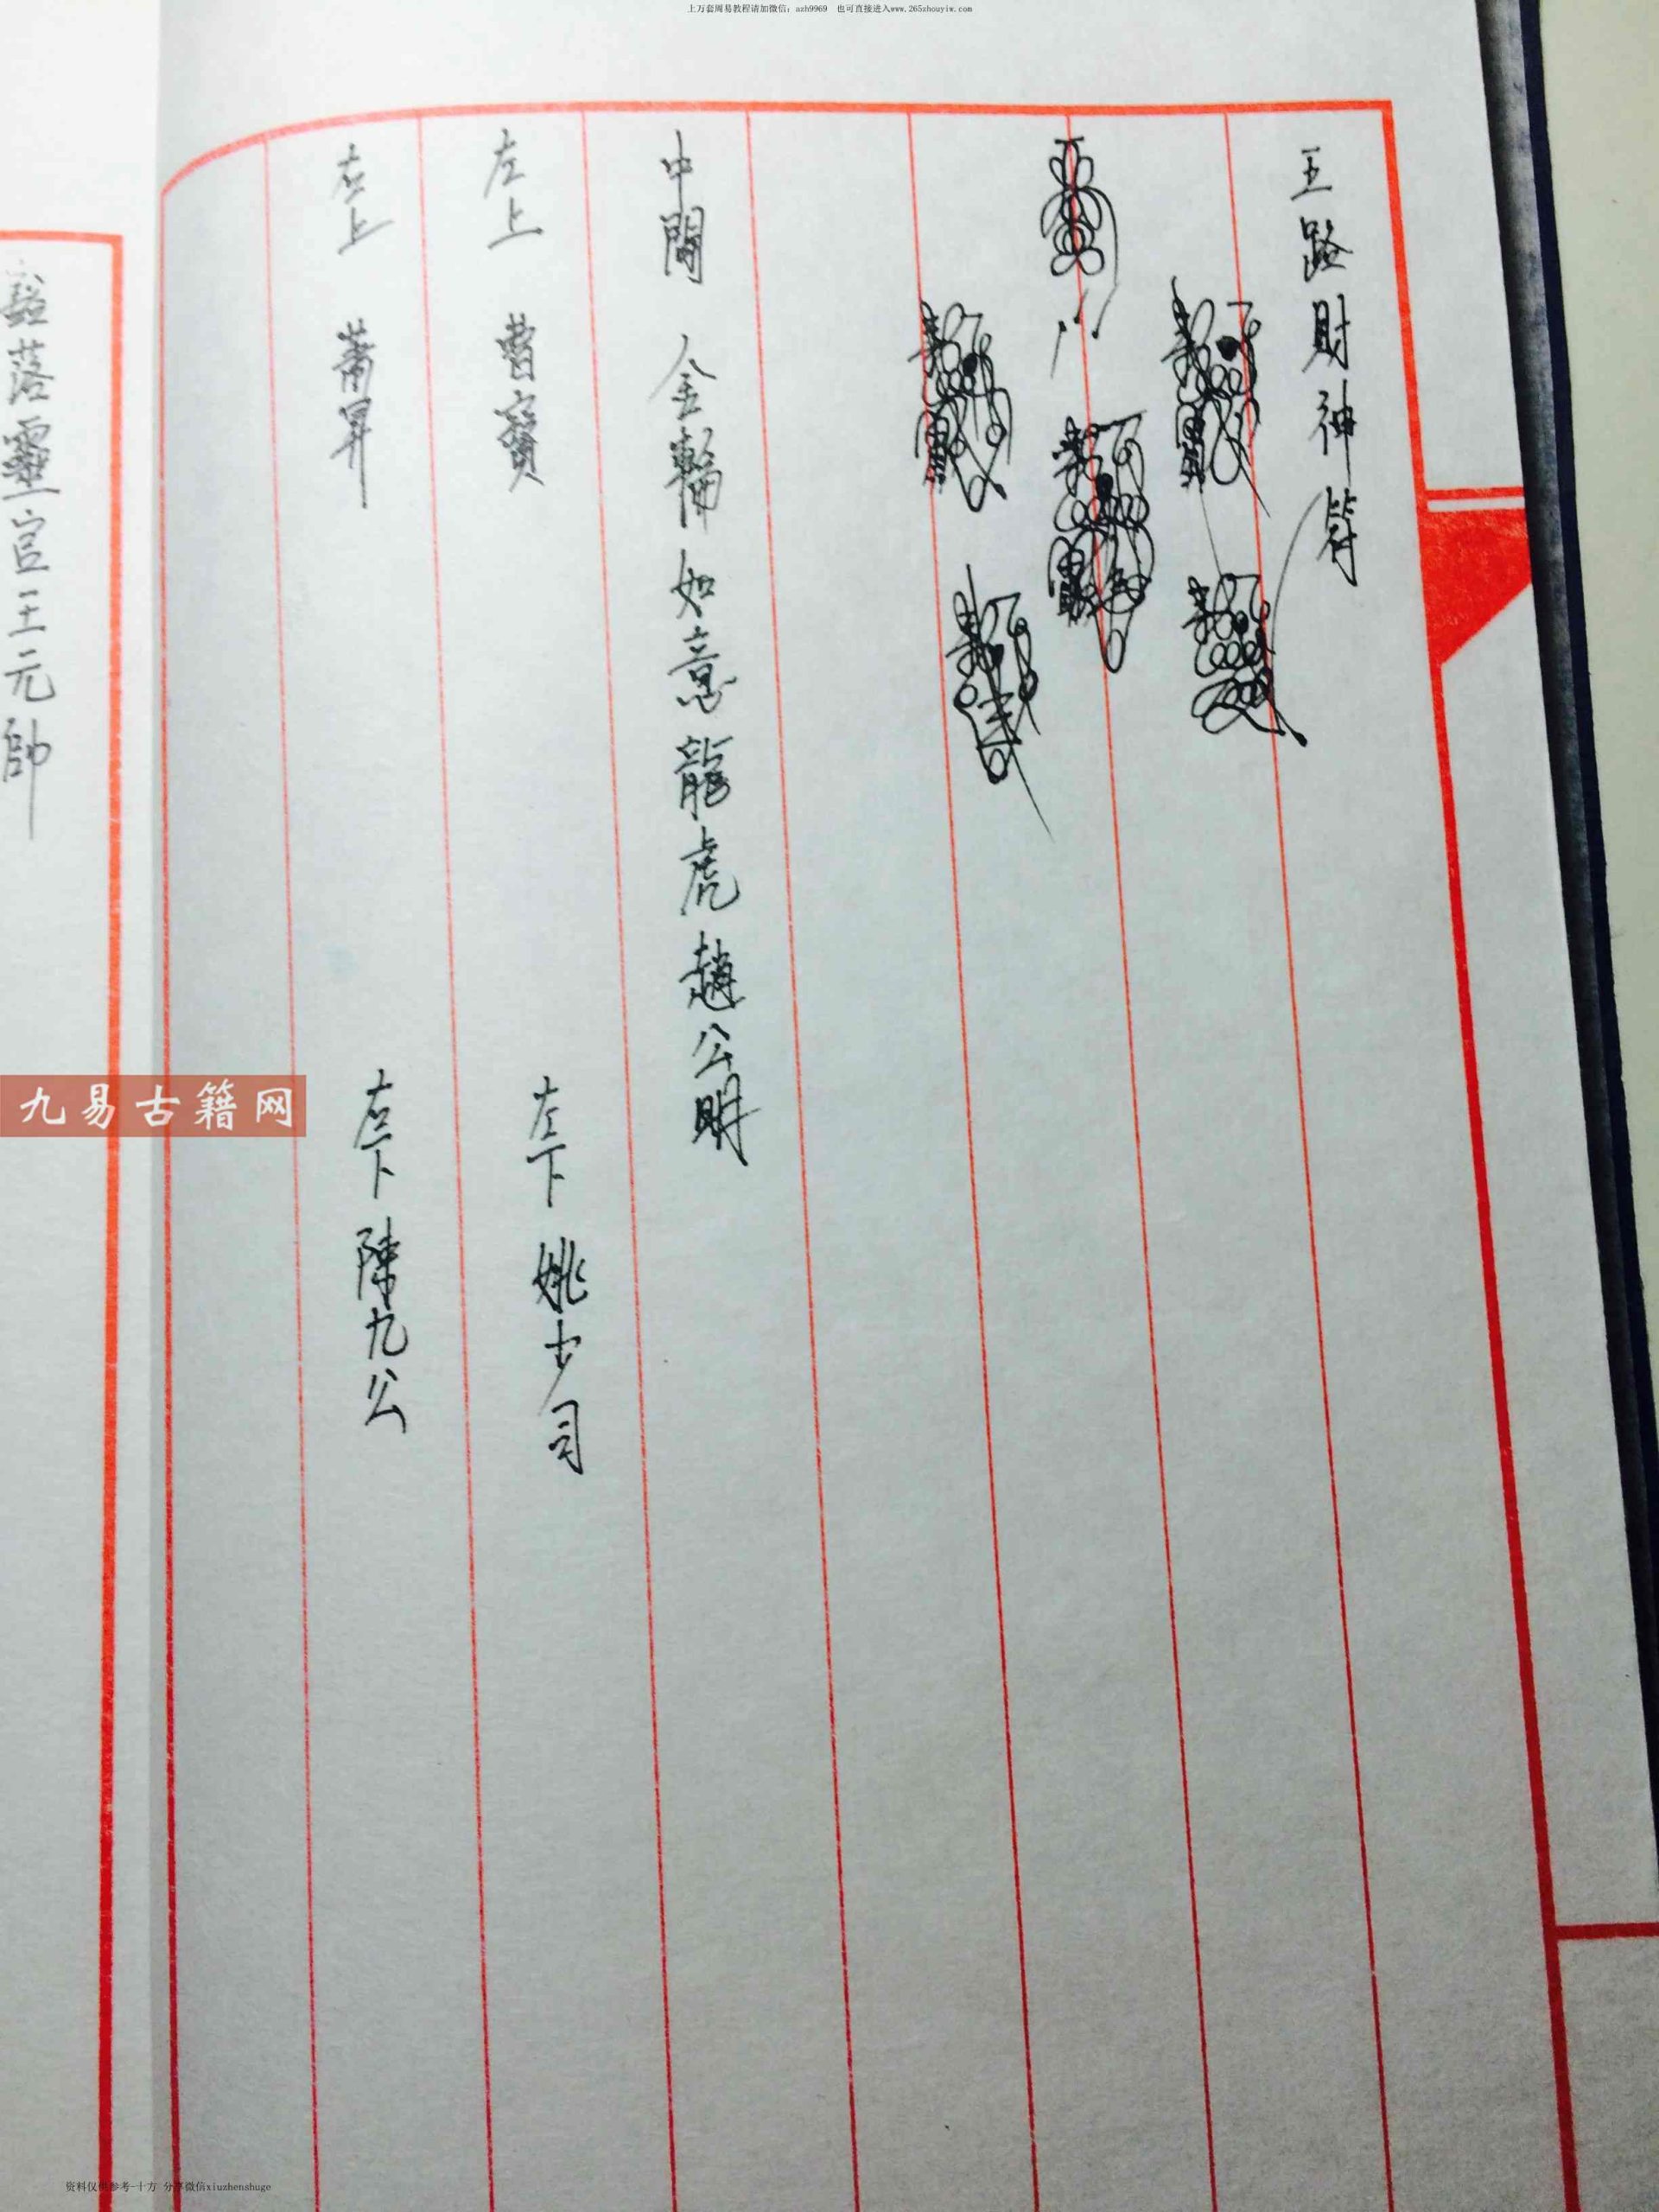 上万套周易教程请加微信：azh9969 也可直接进入www.265zhouyiw.com
五路財神符
中間 金輪如意龍虎趙公明
左上 曹寶 左下 姚少司
右上 蕭昇 右下 陳九公
豁落靈官王元帥
九易古籍网
资料仅供参考-十方 分享微信xiuzhenshuge